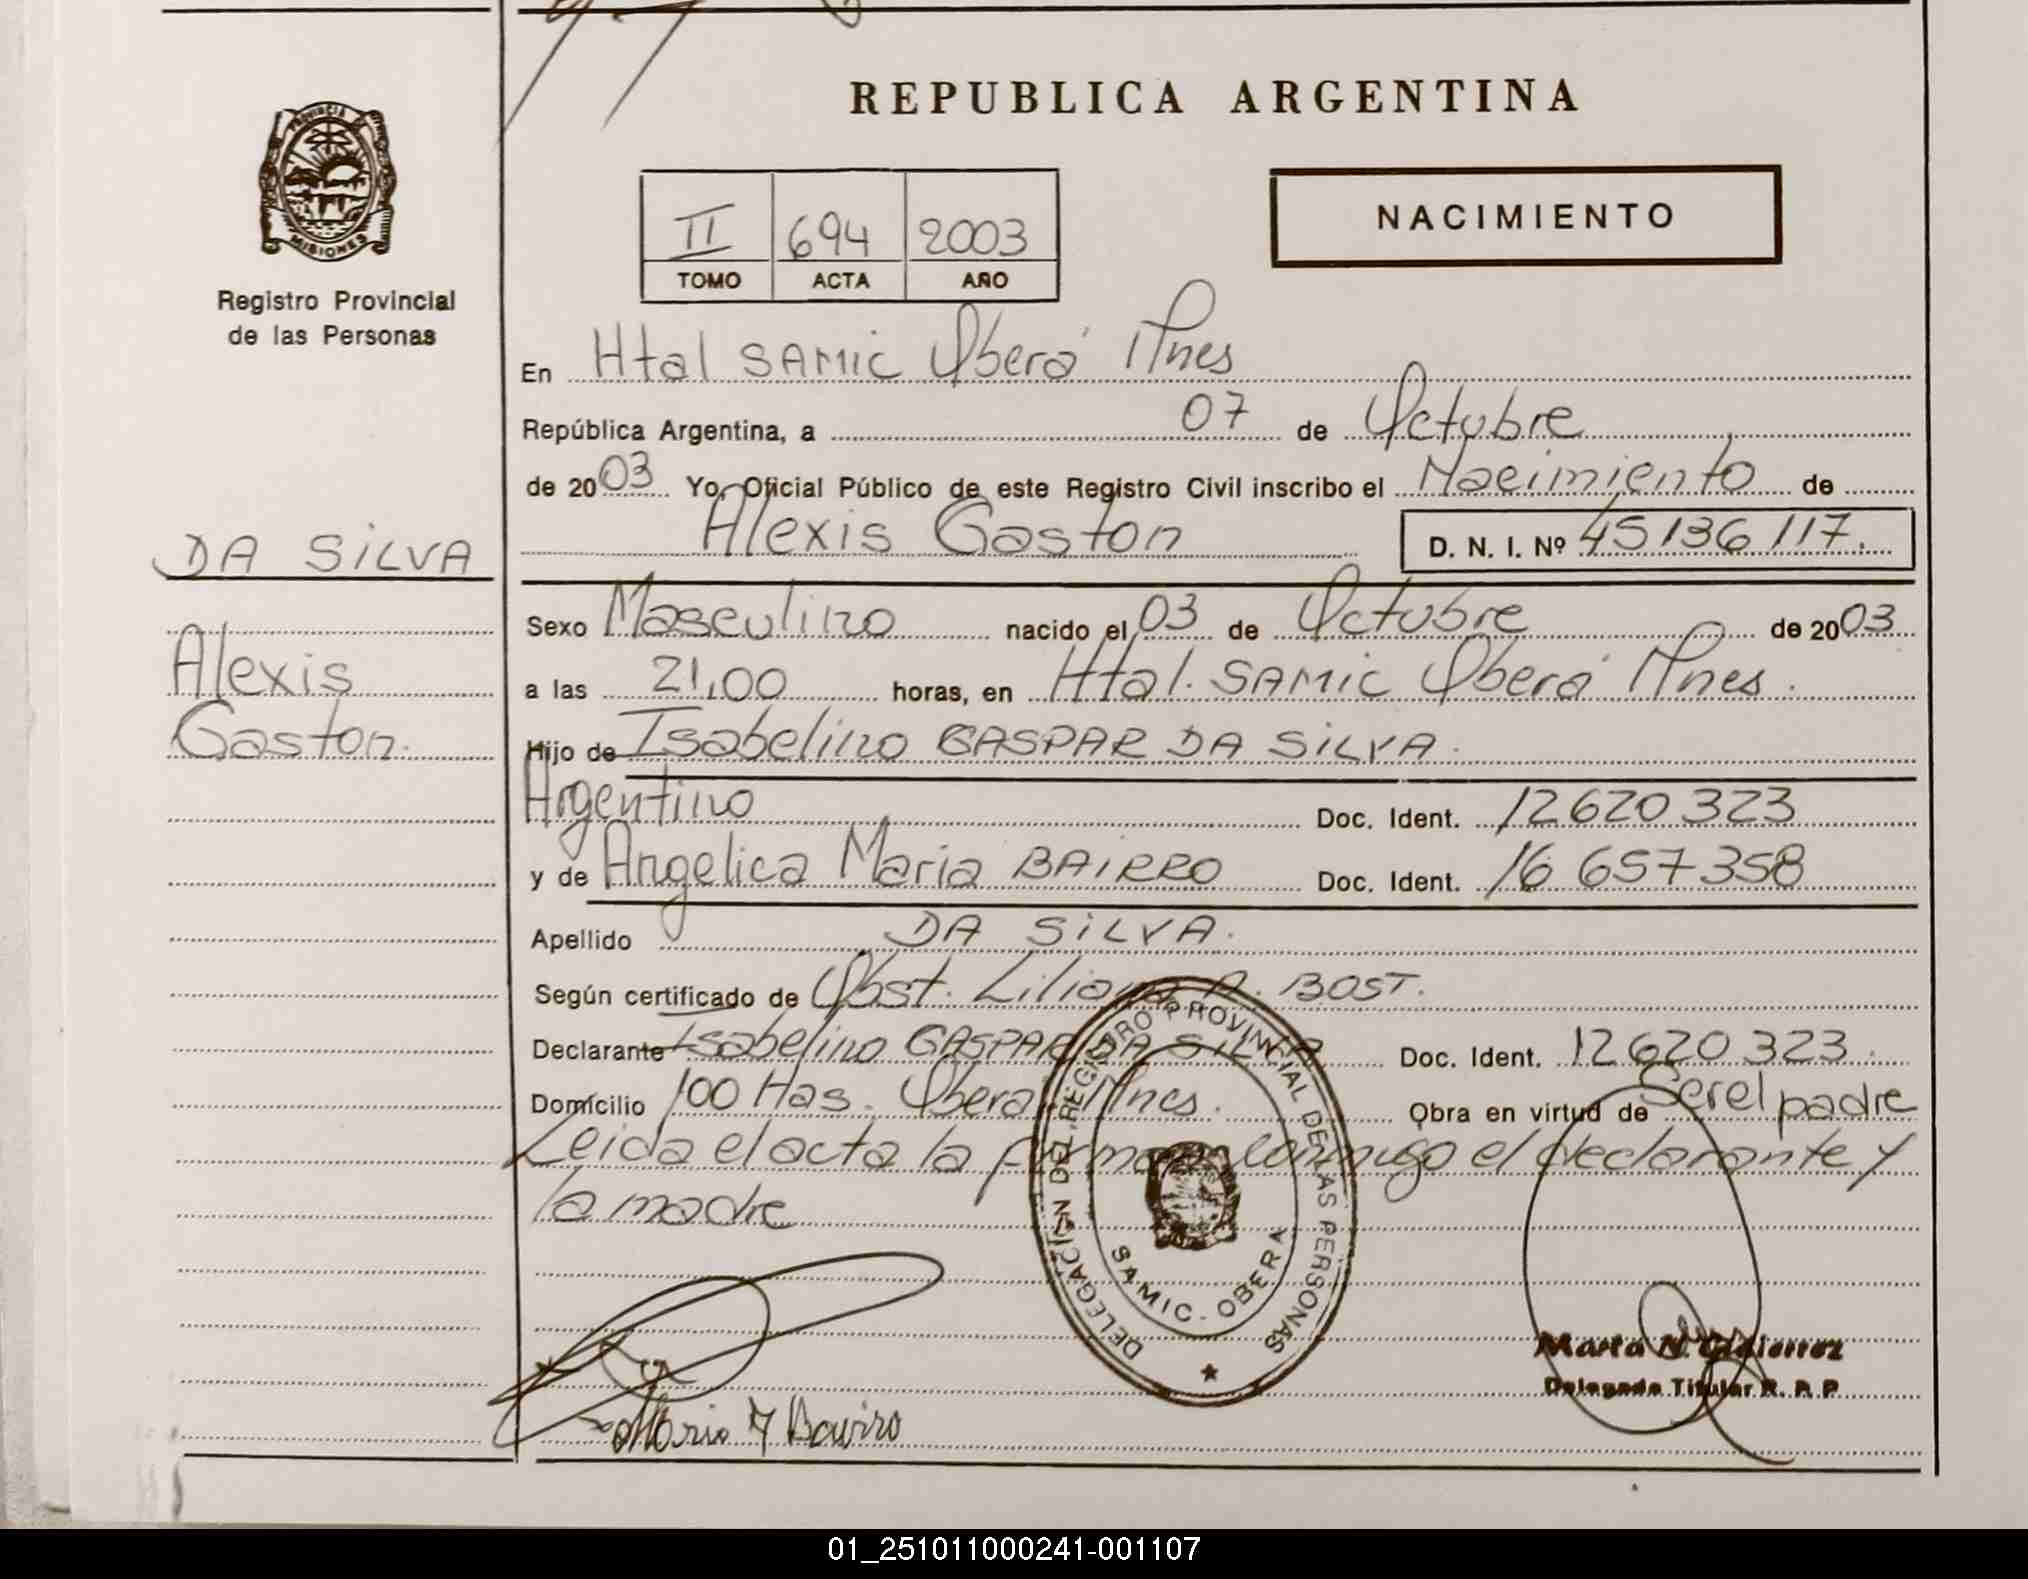 REPUBLICA ARGENTINA
PROVINCIA DE
MISIONES
Registro Provincial
de las Personas
II 694 2003
TOMO ACTA AÑO
NACIMIENTO
DA SILVA
Alexis
Gaston.
En Htal SAMIC Oberá Mnes
República Argentina, a 07 de Octubre
de 2003 Yo, Oficial Público de este Registro Civil inscribo el Nacimiento de
Alexis Gaston D. N. I. Nº 45136117.
Sexo Masculino nacido el 03 de Octubre de 2003
a las 21,00 horas, en Htal. SAMIC Oberá Mnes.
Hijo de Isabelino GASPAR DA SILVA.
Argentino Doc. Ident. 12620323
y de Angelica Maria BAIRRO Doc. Ident. 16657358
Apellido DA SILVA.
Según certificado de Obst. Liliana A. BOST.
Declarante Isabelino GASPAR DA SILVA Doc. Ident. 12620323
Domicilio 100 Has. Oberá Mnes. Obra en virtud de Ser el padre
Leida el acta la firman conmigo el declarante y
la madre
DELEGACIÓN DEL REGISTRO PROVINCIAL DE LAS PERSONAS
SAMIC - OBERA
Marta N. Gutierrez
Delegada Titular R. P. P.
Bairro
01_251011000241-001107